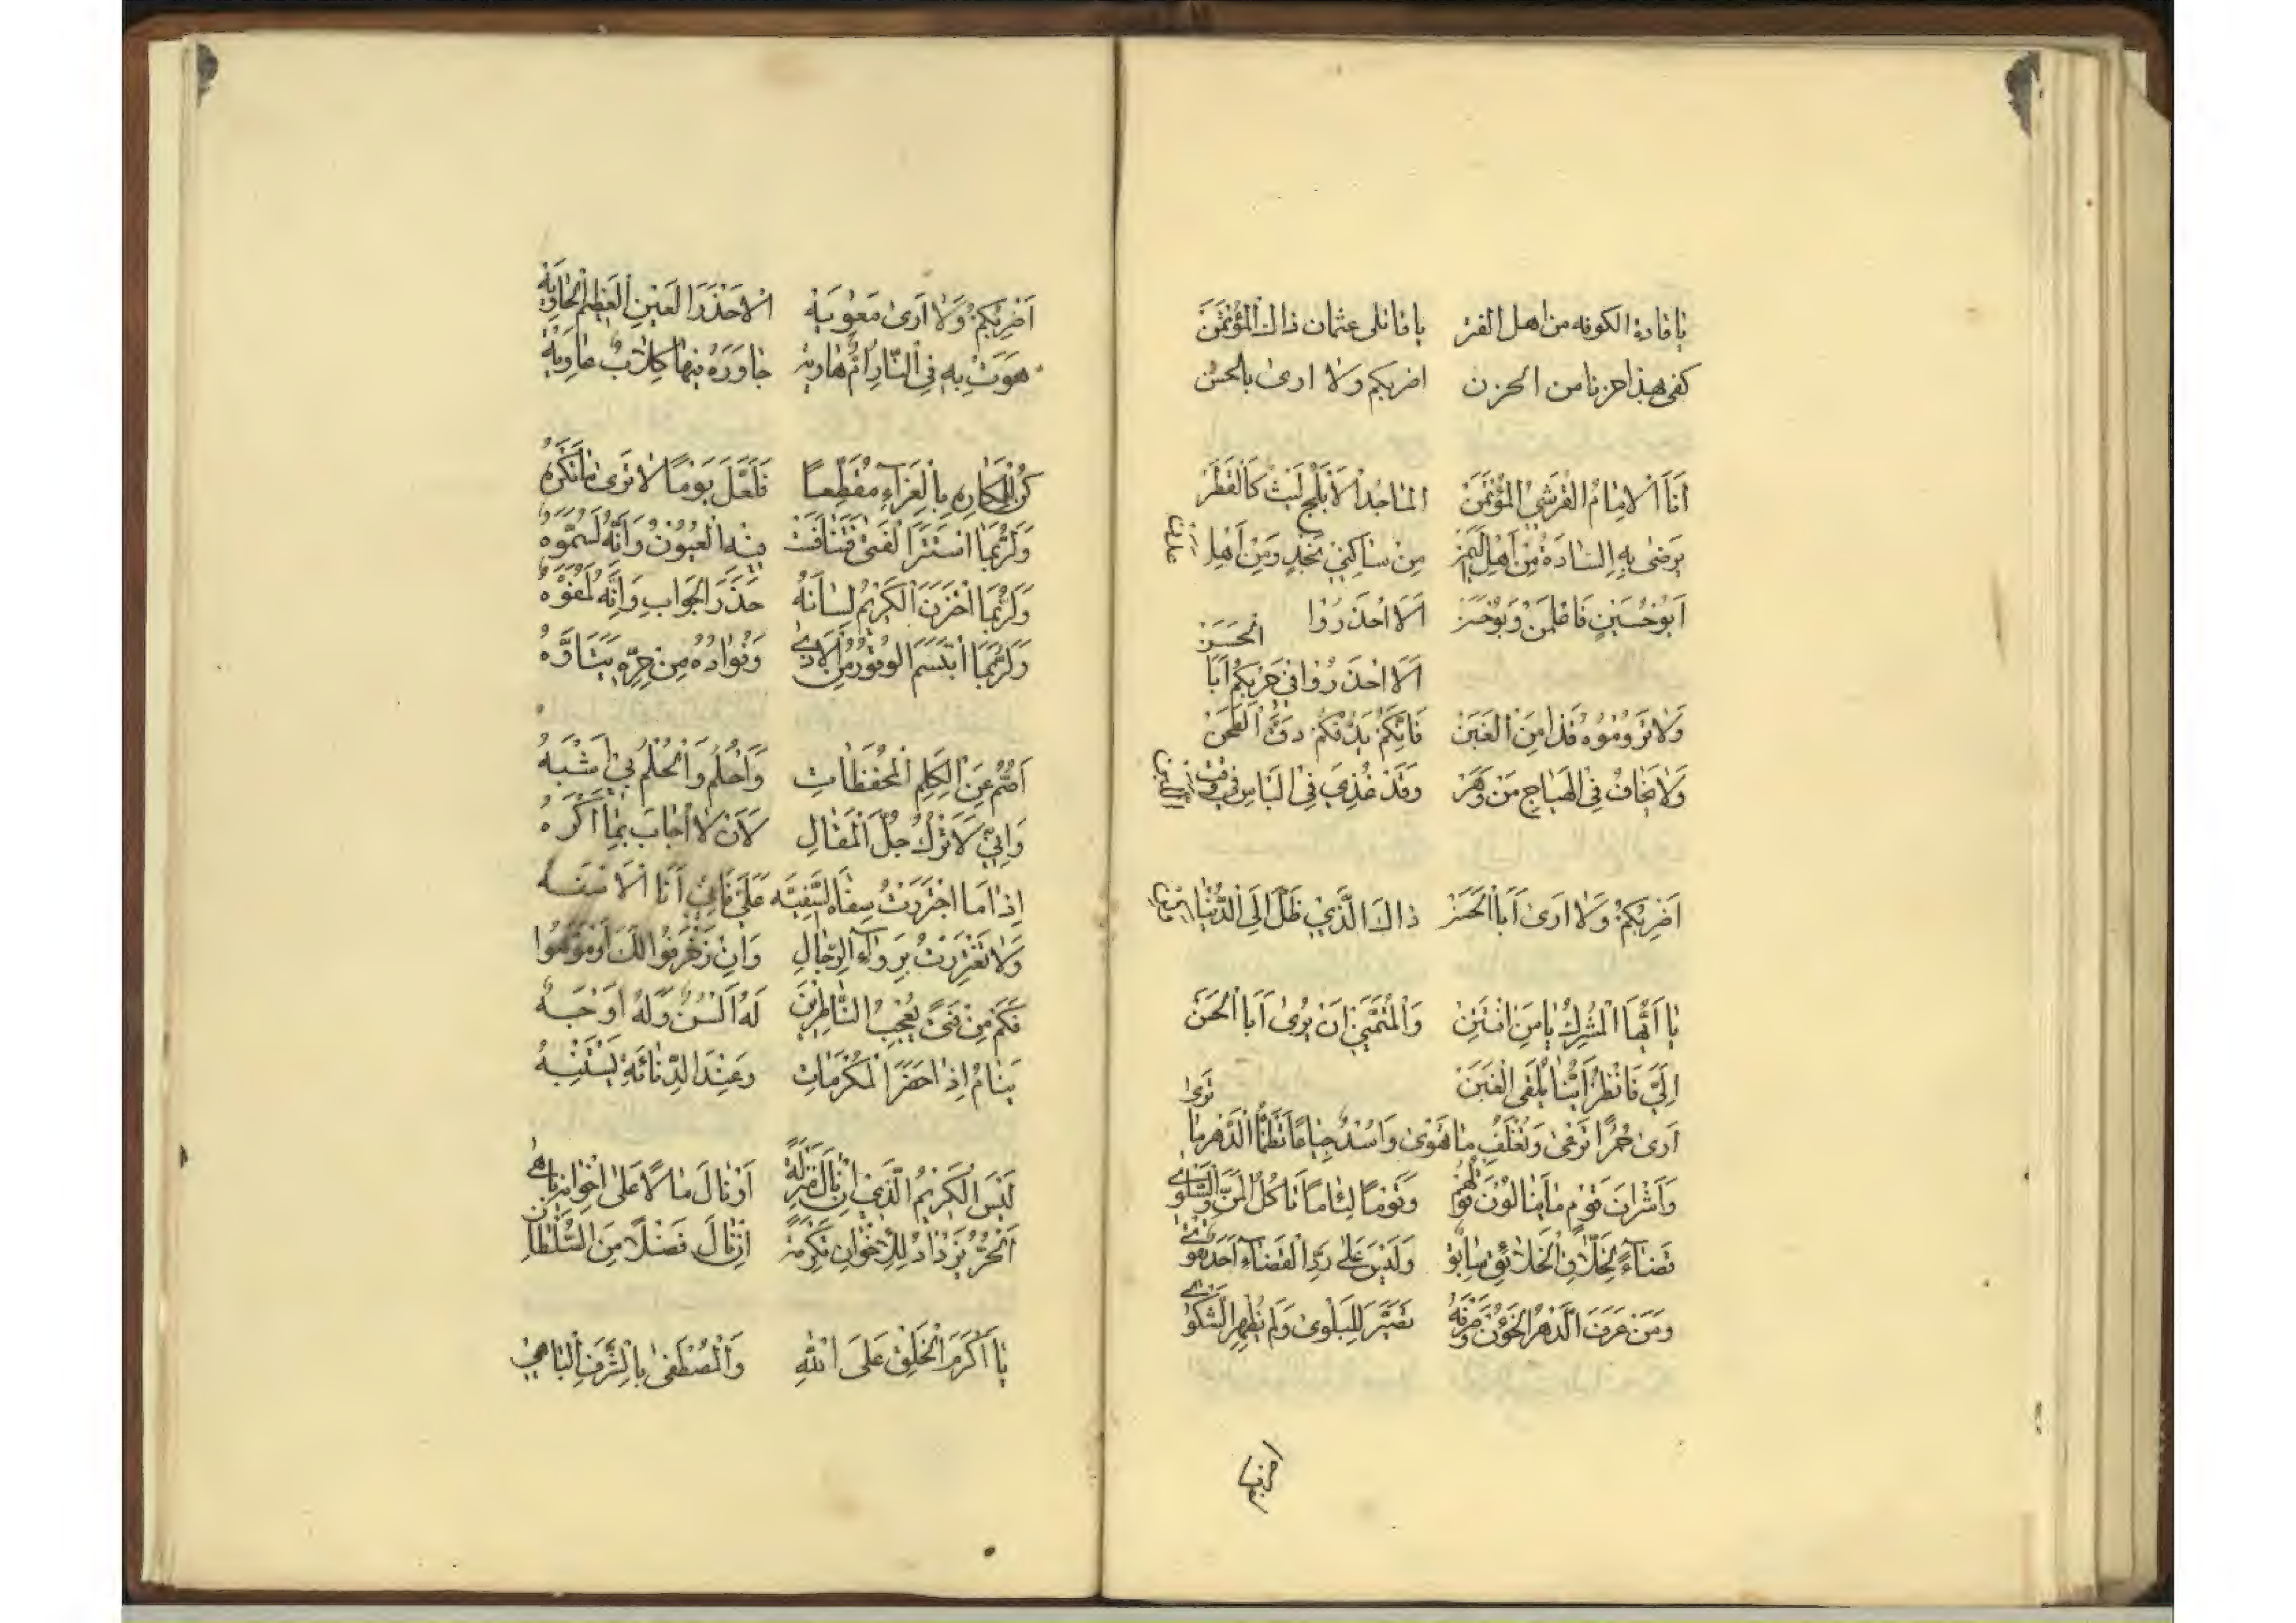 يا قادة الكوفه من اهل الفتن يا قاتلى عثمان ذاك المؤتمن
كفى بهذا حزنا من الحزن اضربكم ولا ارى بالحسن
اَنَا اْلاِمَامُ القُرَشِيُّ المُؤْتَمَنْ الماجِدُ اْلاَبْلَجُ لَيْثٌ كَالْقَطَنْ
يَرْضى بِهِ السَّادَةُ مِنْ اَهْلِ اليَمَنْ مِنْ سَاكِنِي نَجْدٍ وَمِنْ اَهْلِ عدن
اَبُو حُسَيْنٍ فَاعْلَمَنْ وَبُو حَسَنْ اَلاَ احْذَرُوا
الحَسَنْ
اَلاَ احْذَرُوا فِي حَرْبِكُمْ اَبَا
وَلاَ تَرُومُوهُ فَذَا مِنَ الغَبَنْ فَاِنَّكُمْ يَدُقُّكُمْ دَقَّ الطَّحَنْ
وَلاَ يَخَافُ فِي الهَيَاجِ مَنْ وَمَنْ وَقَدْ غُذِيَ فِي البَاسِ فِي وقت
اَضْرِبُكُمْ وَلاَ اَرى اَبَا الحَسَنْ ذَاكَ الَّذِي ظَلَّ اِلَى الدُّنْيَا
يَا اَيُّهَا الْمُشْرِكُ يَا مَنِ افْتَتَنْ وَالْمُتَمَنِّي اَنْ يَرى اَبَا الحَسَنْ
اِلَيَّ فَانْظُرْ اَيُّنَا يَلْقَى الغَبَنْ
اَرى حُمُرًا تَرْعى وَتُعْلَفُ مَا تَهْوى وَاُسْدًا جِيَاعًا تَظْمَأُ الدَّهْرَ مَا تَروى
وَاَشْرَافَ قَوْمٍ مَا يَنَالُونَ قُوتَهُمْ وَقَوْمًا لِئَامًا تَأْكُلُ المَنَّ وَالسَّلْوى
قَضَاءٌ لِخَلاَّقِ الخَلاَئِقِ سَابِقٌ وَلَيْسَ عَلى رَدِّ القَضَاءِ اَحَدٌ يَقْوى
وَمَنْ عَرَفَ الدَّهْرَ الخَؤُنَ وَصَرْفَهُ تَصَبَّرَ لِلْبَلْوى وَلَمْ يُظْهِرِ الشَّكْوى
اضربكم
اَضْرِبُكُمْ وَلاَ اَرى مَعْوِيَهْ اْلاَخْزَرَ العَيْنِ العَظِيمَ الحَاوِيَهْ
هَوَتْ بِهِ فِي النَّارِ اُمٌّ هَاوِيَهْ جَاوَرَهُ فِيهَا كِلاَبٌ عَاوِيَهْ
كُنْ لِلْمَكَارِهِ بِالعَزَاءِ مُقَطِّعًا فَلَعَلَّ يَوْمًا لاَ تَرى مَا تَكْرَهُ
وَلَرُبَّمَا اسْتَتَرَ الفَتى فَتَنَافَسَتْ فِيهِ العُيُونُ وَاَنَّهُ لَمُمَوَّهُ
وَلَرُبَّمَا اخْتَزَنَ الكَرِيمُ لِسَانَهُ حَذَرَ الجَوَابِ وَاِنَّهُ لَمُفَوَّهُ
وَلَرُبَّمَا ابْتَسَمَ الوَقُورُ مِنَ الاَذى وَفُؤَادُهُ مِنْ حَرِّهِ يَتَاَوَّهُ
اَصَمُّ عَنِ الْكَلِمِ المُحْفِظَاتِ وَاَحْلُمُ وَالْحُلْمُ بِي اَشْبَهُ
وَاِنِّي لاَتْرُكُ جُلَّ الْمَقَالِ لاَنْ لاَ اُجَابَ بِمَا اَكْرَهُ
اِذَا مَا اجْتَرَرْتُ سِفَاهَ السَّفِيهِ عَلَيَّ فَاِنِّي اَنَا اْلاَسْفَهُ
وَلاَ تَغْتَرِرْ بِرِوَاءِ الرِّجَالِ وَاِنْ زَخْرَفُوا لَكَ اَوْ مَوَّهُوا
فَكَمْ مِنْ فَتىً يُعْجِبُ النَّاظِرِينَ لَهُ اَلْسُنٌ وَلَهُ اَوْجُهُ
يَنَامُ اِذَا حَضَرَ المَكْرُمَاتِ وَعِنْدَ الدَّنَائَةِ يَسْتَنْبِهُ
لَيْسَ الْكَرِيمُ الَّذِي اِنْ نَالَ مَنْزِلَةً اَوْ نَالَ مَالاً عَلى اِخْوَانِهِ تَاهَا
اَلْحُرُّ يَزْدَادُ لِلْاِخْوَانِ تَكْرِمَةً اِنْ نَالَ فَضْلاً مِنَ السُّلْطَانِ
يَا اَكْرَمَ الْخَلْقِ عَلَى اللهِ وَالْمُصْطَفى بِالشَّرَفِ البَاهِي